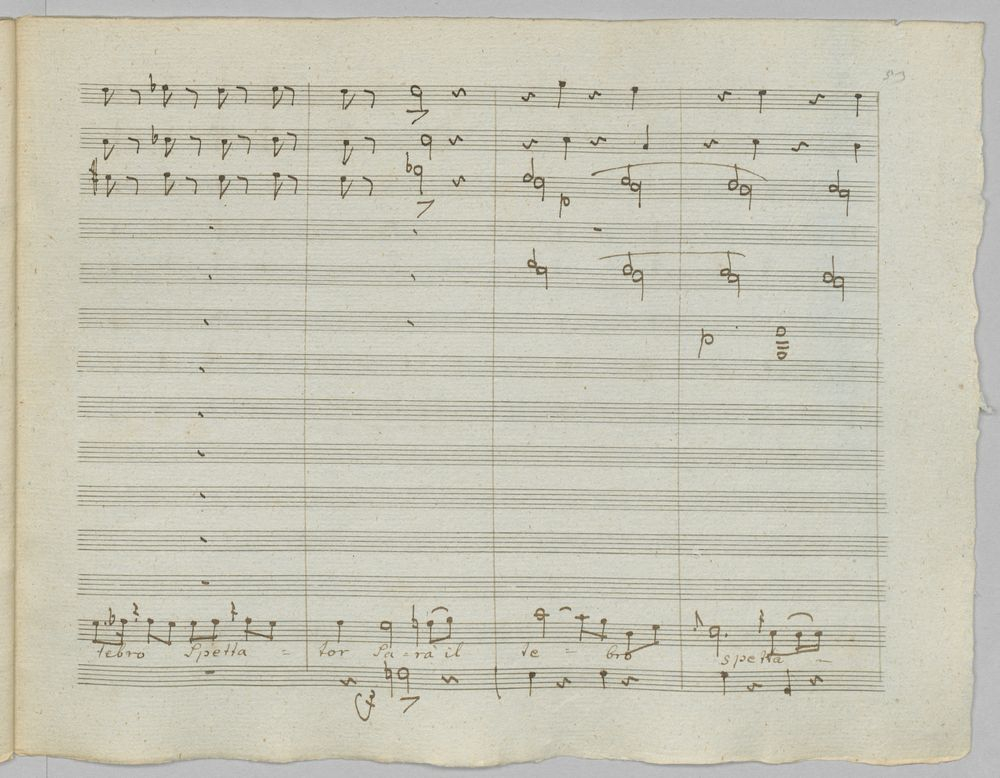 p
p
tebro Spetta = tor Sa=rà il te = bro spetta =